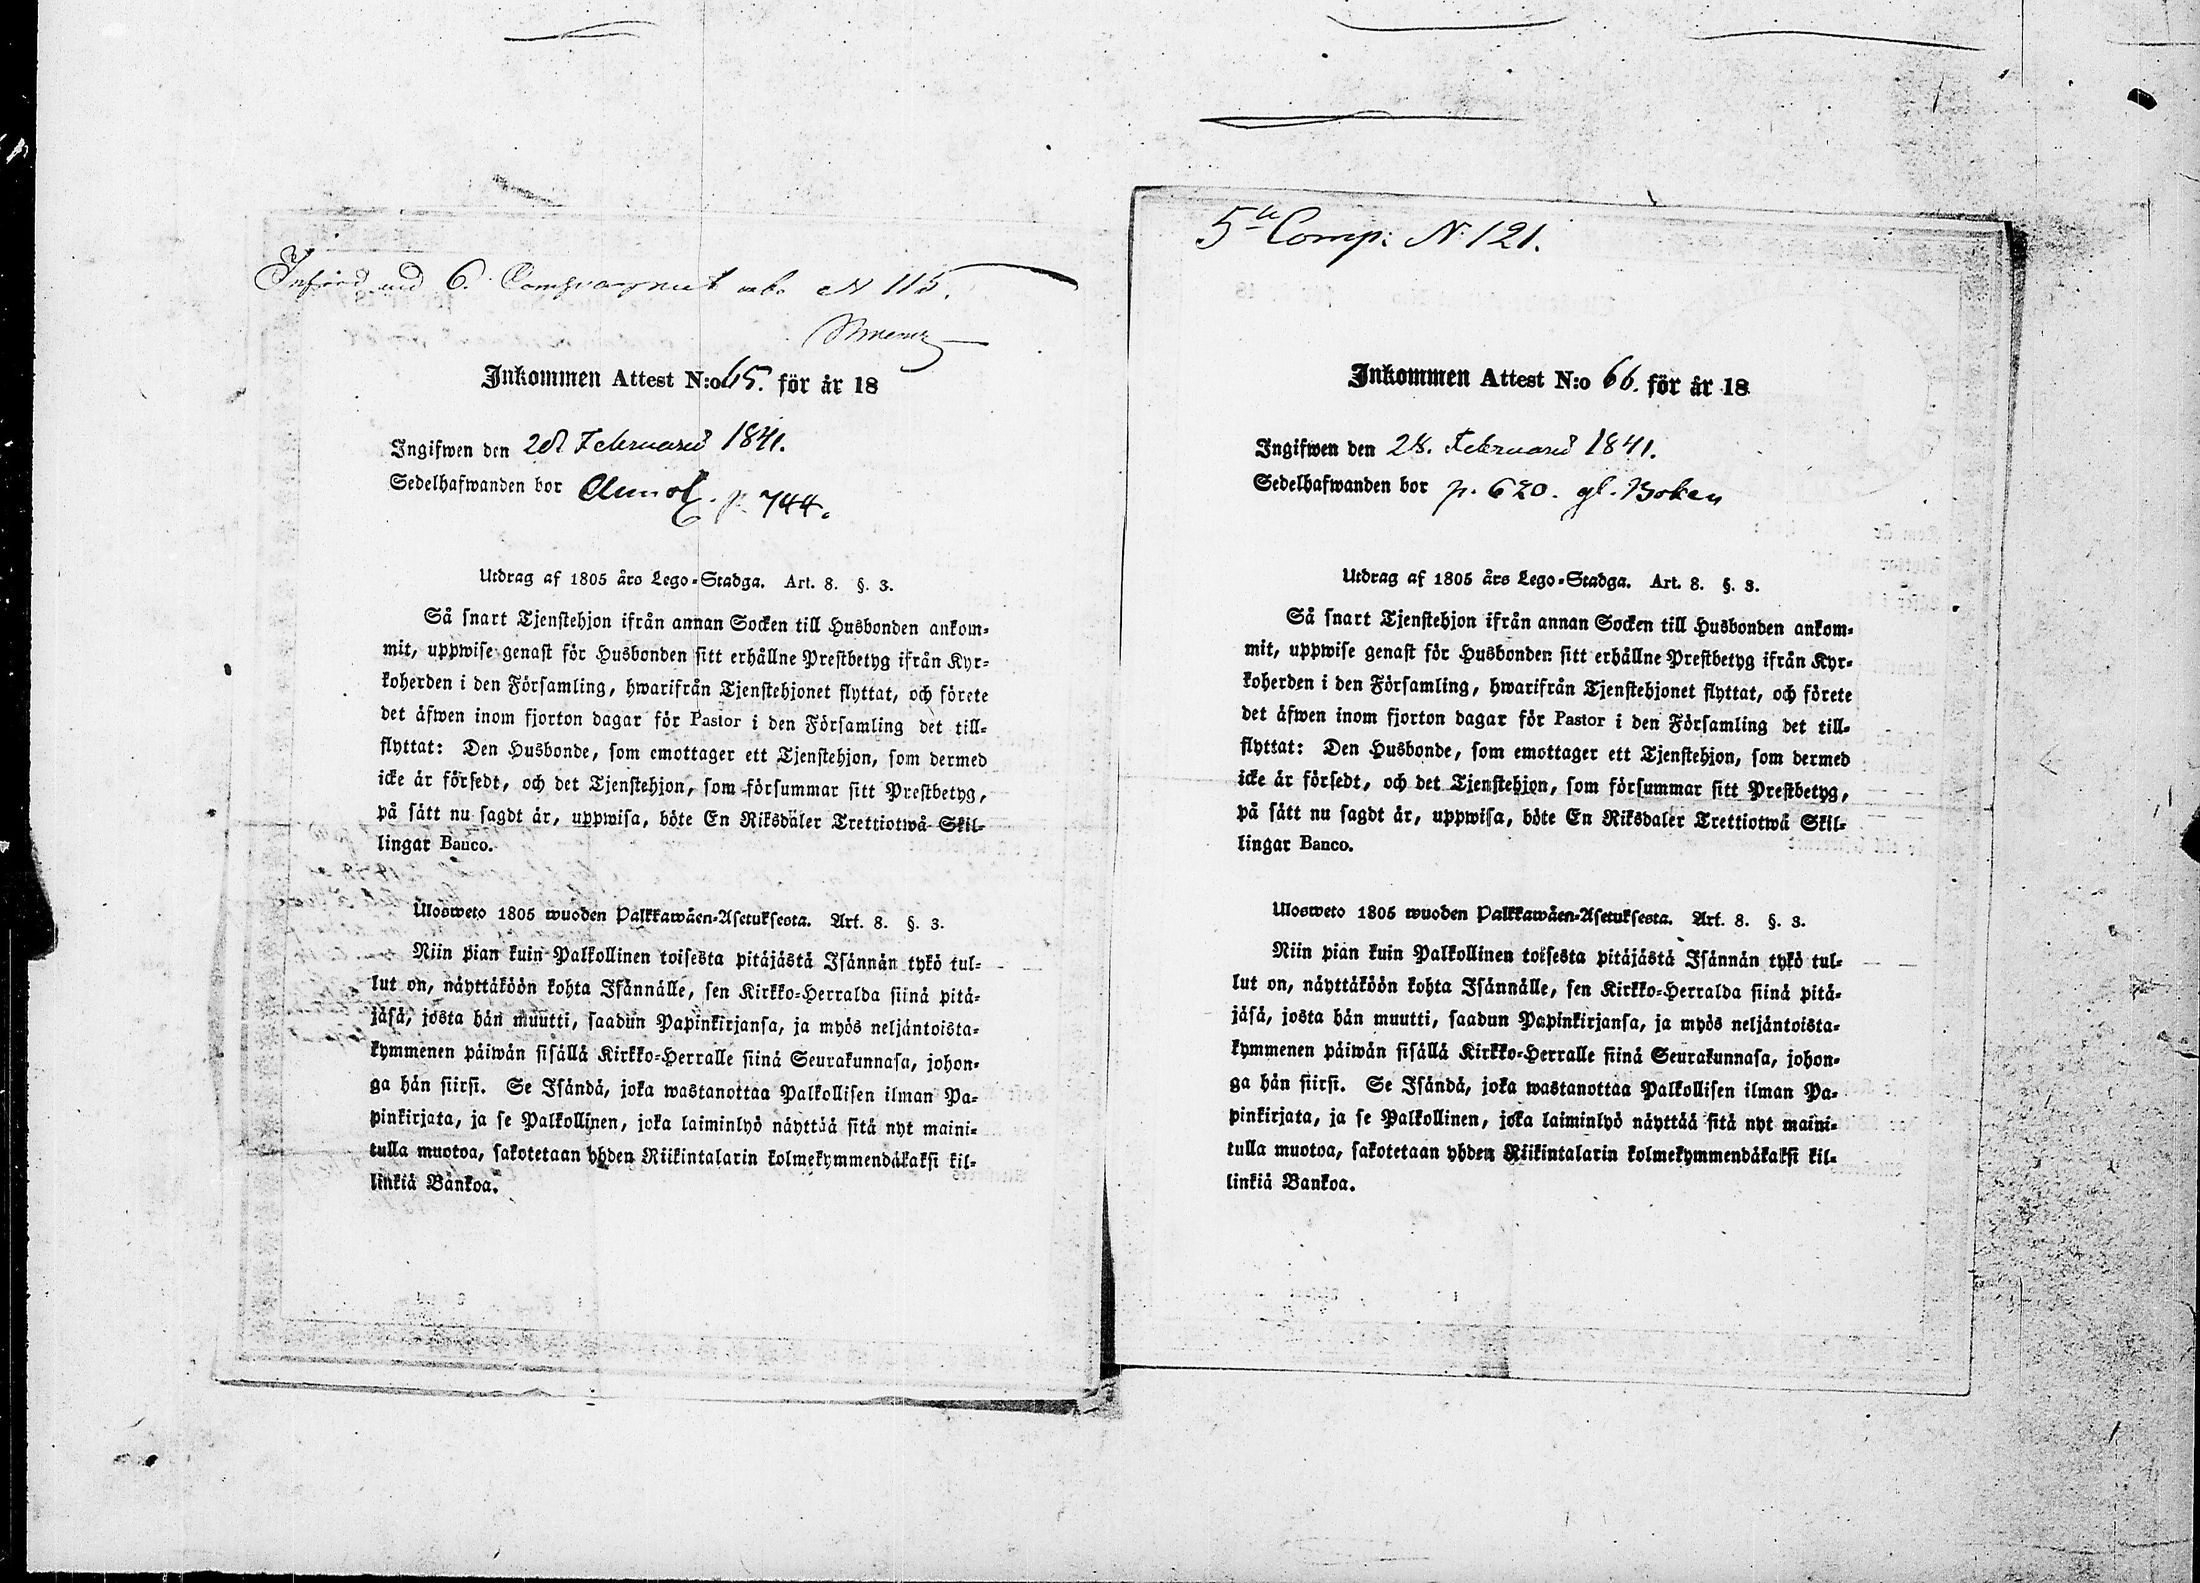 Införd vid 6. Compagniet under N 115.
Inkommen Attest N:o 65. för år 18
Ingifwen den 28 Februarii 1841.
Sedelhafwanden bor p. 744.
Utdrag af 1805 års Lego-Stadga. Art. 8. §. 3.
Så snart Tjenstehjon ifrån annan Socken till Husbonden ankom-
mit, uppwise genast för Husbonden sitt erhållne Prestbetyg ifrån Kyr-
koherden i den Församling, hwarifrån Tjenstehjonet flyttat, och förete
det äfwen inom fjorton dagar för Pastor i den Församling det till-
flyttat: Den Husbonde, som emottager ett Tjenstehjon, som dermed
icke är försedt, och det Tjenstehjon, som försummar sitt Prestbetyg,
på sätt nu sagdt är, uppwisa, böte En Riksdaler Trettiotwå Skil-
lingar Banco.
Ulosweto 1805 wuoden Palkkawäen-Asetuksesta. Art. 8. §. 3.
Niin pian kuin Palkollinen toisesta pitäjästä Isännän tykö tul-
lut on, näyttäköön kohta Isännälle, sen Kirkko-Herralda siinä pitä-
jäsä, josta hän muutti, saadun Papinkirjansa, ja myös neljäntoista-
kymmenen päiwän sisällä Kirkko-Herralle siinä Seurakunnasa, johon-
ga hän siirsi. Se Isändä, joka wastanottaa Palkollisen ilman Pa-
pinkirjata, ja se Palkollinen, joka laiminlyö näyttää sitä nyt maini-
tulla muotoa, sakotetaan yhden Riikintalarin kolmekymmendäkaksi kil-
linkiä Bankoa.
5te Comp: N 121.
Inkommen Attest N:o 66. för år 18
Ingifwen den 28. Februarii 1841.
Sedelhafwanden bor p. 620. gl. Boken
Utdrag af 1805 års Lego-Stadga. Art. 8. §. 3.
Så snart Tjenstehjon ifrån annan Socken till Husbonden ankom-
mit, uppwise genast för Husbonden sitt erhållne Prestbetyg ifrån Kyr-
koherden i den Församling, hwarifrån Tjenstehjonet flyttat, och förete
det äfwen inom fjorton dagar för Pastor i den Församling det till-
flyttat: Den Husbonde, som emottager ett Tjenstehjon, som dermed
icke är försedt, och det Tjenstehjon, som försummar sitt Prestbetyg,
på sätt nu sagdt är, uppwisa, böte En Riksdaler Trettiotwå Skil-
lingar Banco.
Ulosweto 1805 wuoden Palkkawäen-Asetuksesta. Art. 8. §. 3.
Niin pian kuin Palkollinen toisesta pitäjästä Isännän tykö tul-
lut on, näyttäköön kohta Isännälle, sen Kirkko-Herralda siinä pitä-
jäsä, josta hän muutti, saadun Papinkirjansa, ja myös neljäntoista-
kymmenen päiwän sisällä Kirkko-Herralle siinä Seurakunnasa, johon-
ga hän siirsi. Se Isändä, joka wastanottaa Palkollisen ilman Pa-
pinkirjata, ja se Palkollinen, joka laiminlyö näyttää sitä nyt maini-
tulla muotoa, sakotetaan yhden Riikintalarin kolmekymmendäkaksi kil-
linkiä Bankoa.